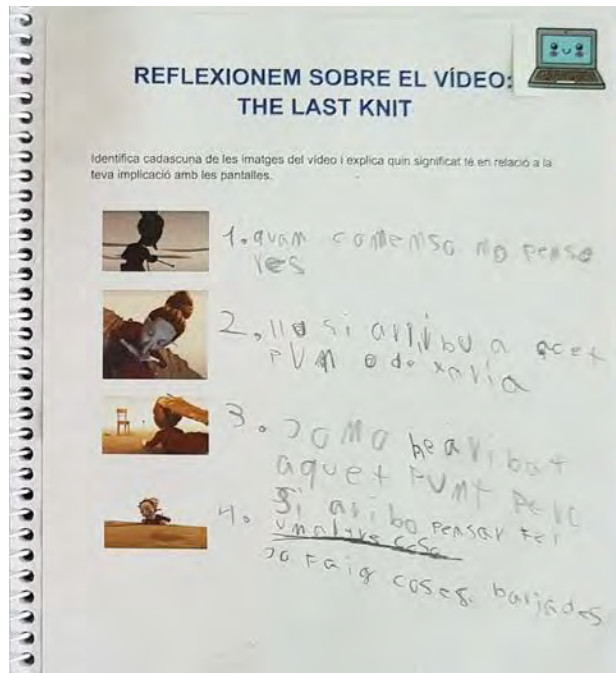 REFLEXIONEM SOBRE EL VÍDEO:
THE LAST KNIT
Identifica cadascuna de les imatges del vídeo i explica quin significat té en relació a la
teva implicació amb les pantalles.
1. quan comenso no penso
res
2. si arribu a acet
PUM
3. JO NO he arribat
aquet PUMT PERO
4. Si aribo pensar fer
una altre cosa
Jo faig coses barjades